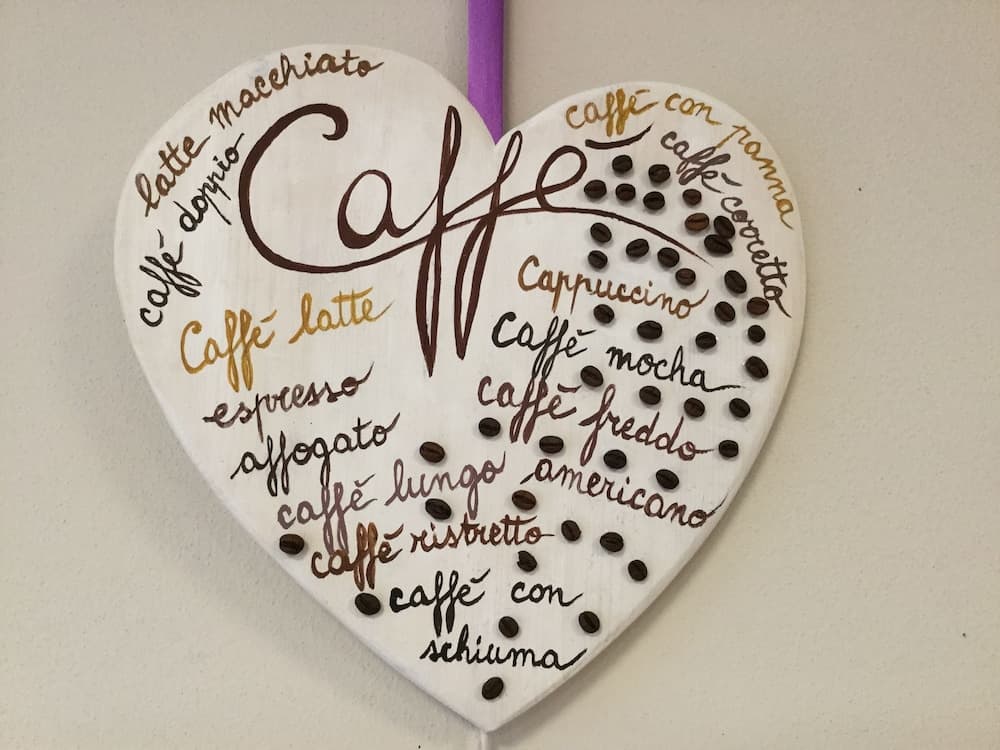 latte macchiato
caffè doppio
Caffè
caffè con panna
caffè corretto
Caffè latte
Cappuccino
Caffè mocha
espresso
caffè freddo
affogato
caffè lungo
americano
caffè ristretto
caffè con
schiuma